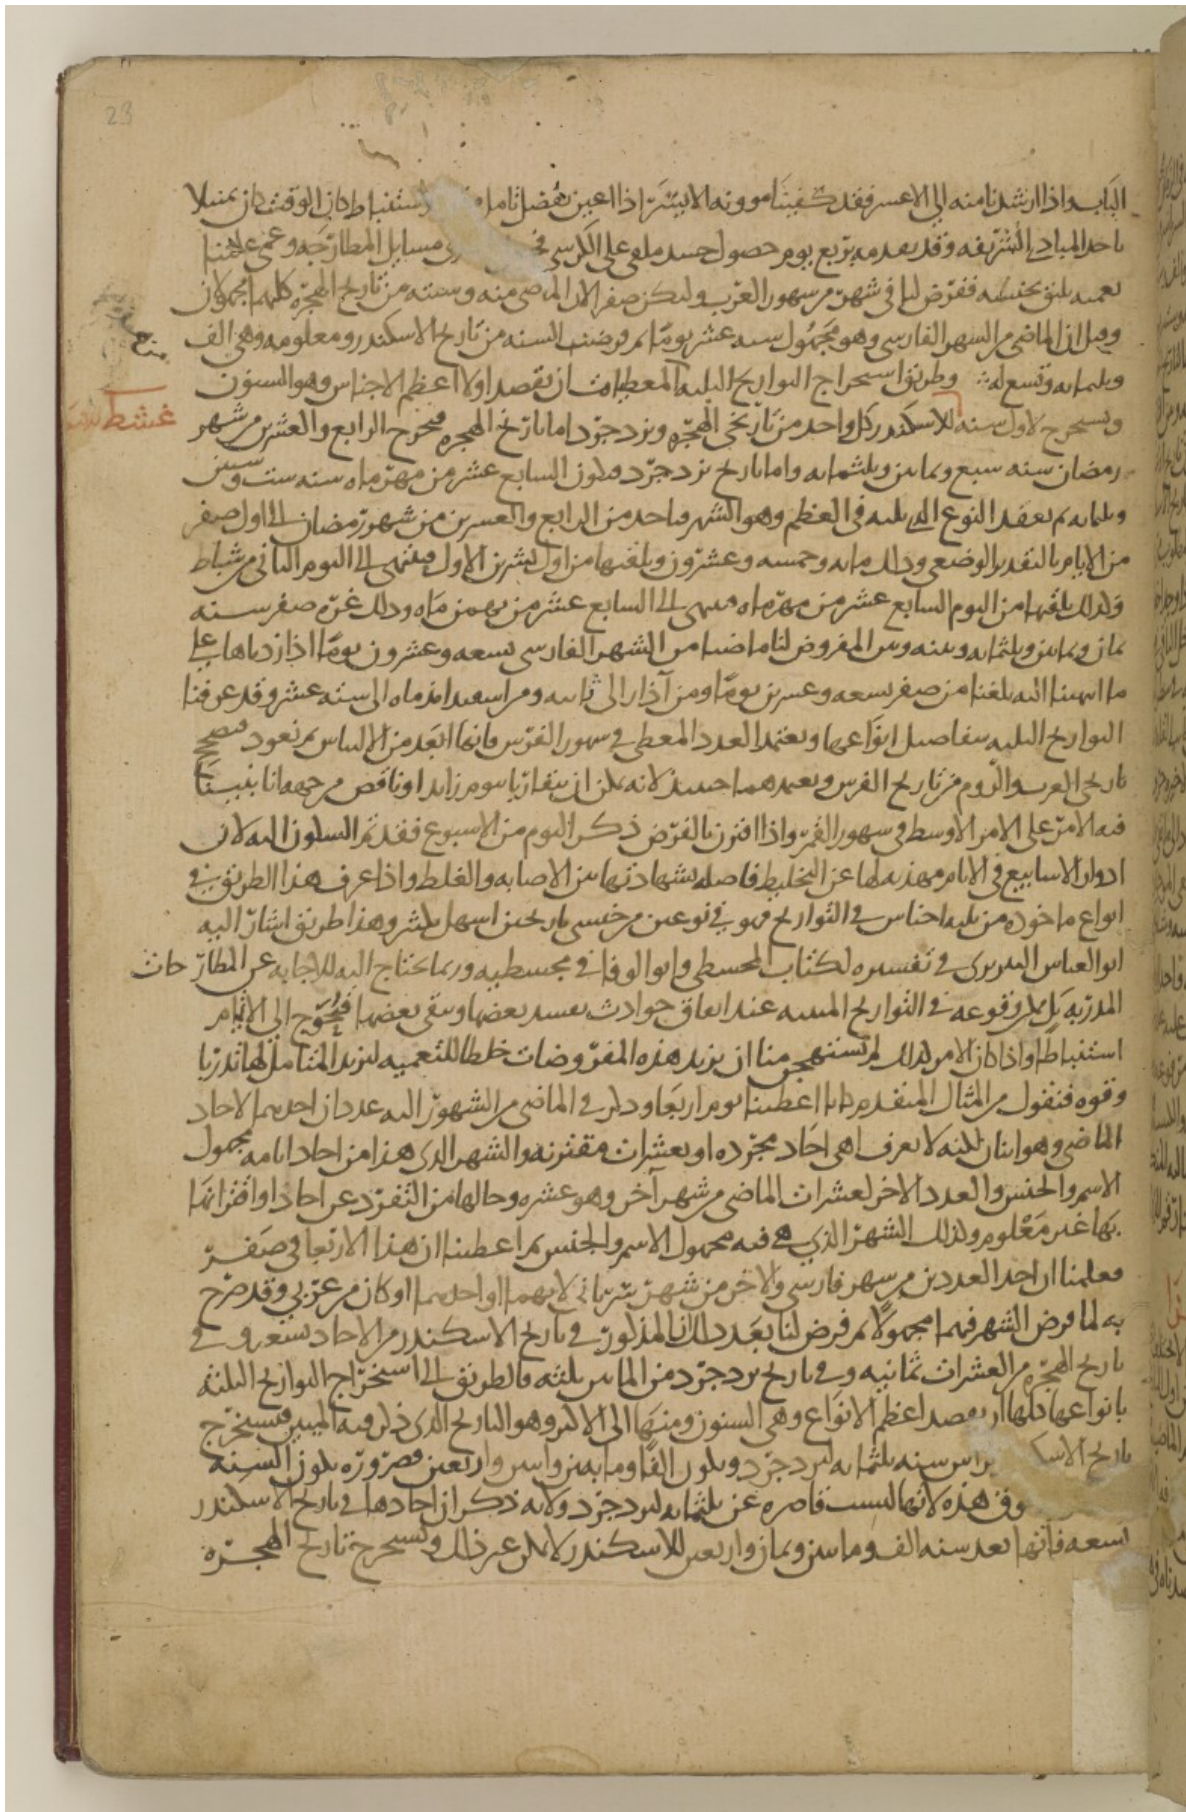 الباب واذا ارشدنا منه الى الاعسر فقد كفينا موونه الايسر اذا اعين بفضل تامل استنباط كان الوقت كان بمنيلا
باحد المبادى الشريفه وقد بعد مه يربع يوم حصول جسد ملقى على الكرسى مسايل المطارحه وعمى علينا
تعميه بليق بجنسه ففرض لنا فى شهر من شهور العرب وليكن صفر الماضى منه وسنته من تاريخ الهجرة كلها مجهولان
وقيل ان الماضى من الشهر الفارسى وهو مجهول سته عشر يوما ثم فرضت السنه من تاريخ الاسكندر ومعلومه وهى الف
وثلثمايه وتسع له وطريق استخراج التواريخ الثلثه المعطيات ان نقصد اولا اعظم الاجناس وهو السنون
ونستخرج لاول سنه للاسكندر كل واحد من تاريخى الهجره ويزدجرد اما تاريخ الهجره فيخرج الرابع والعشرين من شهر
رمضان سنه سبع وثمانين وثلثمايه واما تاريخ يزدجرد فيكون السابع عشر من مهرماه سنه ست وستين
وثلثمايه ثم نقصد النوع الذى يليه فى العظم وهو الشهر فناخذ من الرابع والعشرين من شهر رمضان الى اول صفر
من الايام بالتقدير الوضعى وذلك مايه وخمسه وعشرون ونلقيها من اول تشرين الاول فينتهى الى اليوم الثانى من شباط
وكذلك نلقيها من اليوم السابع عشر من مهرماه فينتهى الى السابع عشر من بهمن ماه وذلك غره صفر سنه
ثمان وثمانين وثلثمايه وبينه وبين المفروض لنا ماضيا من الشهر الفارسى تسعه وعشرون يوما اذا زدناها على
ما انتهينا اليه بلغنا من صفر تسعه وعشرين يوما ومن آذار الى ثانيه ومن اسفندارمذ ماه الى سته عشر وقد عرفنا
التواريخ الثلثه بتفاصيل انواعها ونعتمد العدد المعطى فى شهور الفرس فانها ابعد من الالتباس ثم نعود فنصحح
تاريخى العرب والروم من تاريخ الفرس ونعتمدهما حينيذ لانه يمكن ان يتفارتا بيوم زايد او ناقص من جهه انا بنينا
فيه الامر على الامر الاوسط فى شهور القمر واذا اقترن بالفرض ذكر اليوم من الاسبوع فقد تم السكون اليه لان
ادوار الاسابيع فى الايام مهذبه لها عن التخليط فاصله بشهادتها بين الاصابه والغلط واذا عرف هذا الطريق فى
انواع ماخوذه من ثلثه اجناس فى التواريخ فهو فى نوعين من جنسى تاريخين اسهل بكثير وهذا طريق اشار اليه
ابو العباس النيريزى فى تفسيره لكتاب المجسطى وابو الوفا فى مجسطيه وربما يحتاج اليه للاجابه عن المطارحات
المدربه بل يمكن وقوعه فى التواريخ المبينه عند اتفاق حوادث يفسد بعضها ويبقى بعضها فيحوج الى الاتمام
استنباطا واذا كان الامر كذلك لم نستهجن منا ان نزيد هذه المفروضات خلطا للتعميه ليزيد المتامل لها تدربا
وقوه فنقول من المثال المتقدم انا اعطينا يوم اربعا وذكر فى الماضى من الشهور اليه عددان احدهما الاحاد
الماضى وهو اثنان لكنه لا يعرف اهى احاد مجرده او بعشرات مقترنه والشهر الذى هذا من احاد ايامه مجهول
الاسم والجنس والعدد الاخر لعشرات الماضى من شهر آخر وهو عشره وحالها من التفرد عن احاد او اقترانها
بها غير معلوم وكذلك الشهر الذي هى فيه مجهول الاسم والجنس ثم اعطينا ان هذا الاربعا فى صفر
فعلمنا ان احد العددين من شهر فارسى والاخر من شهر سريانى لانهما او احدهما لو كان من عربى وقد صرح
به لما فرض الشهر فيهما مجهولا ثم فرض لنا بعد ذلك ان المذكور فى تاريخ الاسكندر من الاحاد تسعه وفى
تاريخ الهجره من العشرات ثمانيه وفى تاريخ يزدجرد من المايين ثلثه فالطريق الى استخراج التواريخ الثلثه
بانواعها كلها ان نقصد اعظم الانواع وهى السنون ومنها الى الاكبر وهو التاريخ الذى ذكر فيه الميين فنستخرج
تاريخ الاسكندر لراس سنه ثلثمايه ليزدجرد ويكون الفا ومايتين واثنين واربعين فضروره يكون السنه
فوق هذه لانها ليست قاصره عن ثلثمايه ليزدجرد ولانه ذكر ان احادها فى تاريخ الاسكندر
تسعه فانها بعد سنه الف ومايتين وثمان واربعين للاسكندر لا يمكن غير ذلك ونستخرج تاريخ الهجره